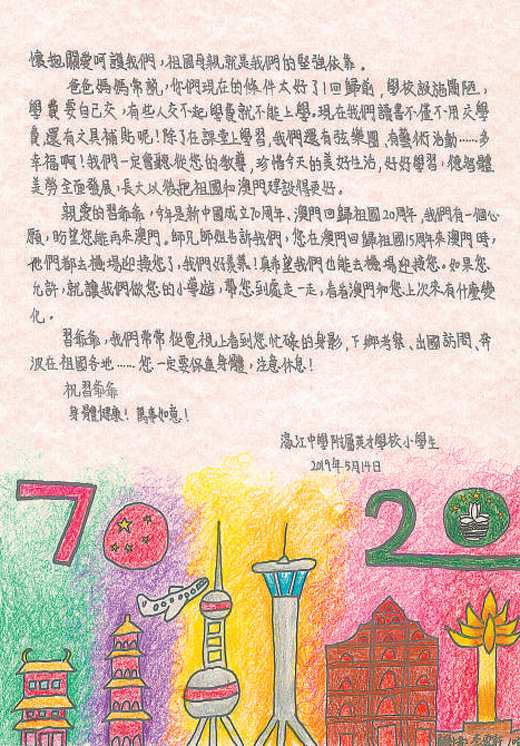 懷抱關愛呵護我們，祖國母親就是我們的堅強依靠。
爸爸媽媽常説，你們現在的條件太好了！回歸前，學校設施簡陋，
學費要自己交，有些人交不起學費就不能上學。現在我們讀書不僅不用交學
費，還有文具補貼呢！除了在課堂上學習，我們還有弦樂團、有藝術活動……多
幸福啊！我們一定會聽從您的教導，珍惜今天的美好生活，好好學習，德智體
美勞全面發展，長大以後把祖國和澳門建設得更好。
親愛的習爺爺，今年是新中國成立70周年、澳門回歸祖國20周年，我們有一個心
願，盼望您能再來澳門。師兄師姐告訴我們，您在澳門回歸祖國15周年來澳門時，
他們都去機場迎接您了，我們好羨慕！真希望我們也能去機場迎接您。如果您
允許，就讓我們做您的小導遊，帶您到處走一走，看看澳門和您上次來有什麼變
化。
習爺爺，我們常常從電視上看到您忙碌的身影，下鄉考察、出國訪問、奔
波在祖國各地……您一定要保重身體，注意休息！
祝習爺爺
身體健康！萬事如意！
濠江中學附屬英才學校小學生
2019年5月14日
70 20